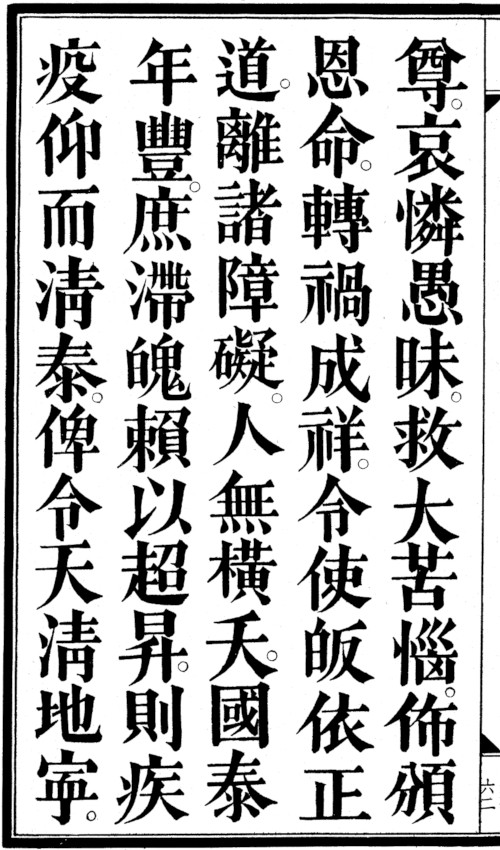 尊。哀憐愚昧。救大苦惱。佈頒
恩命。轉禍成祥。令使皈依正
道。離諸障礙。人無橫夭。國泰
年豐。庶滯魄賴以超昇。則疾
疫仰而淸泰。俾令天淸地寕。
六二